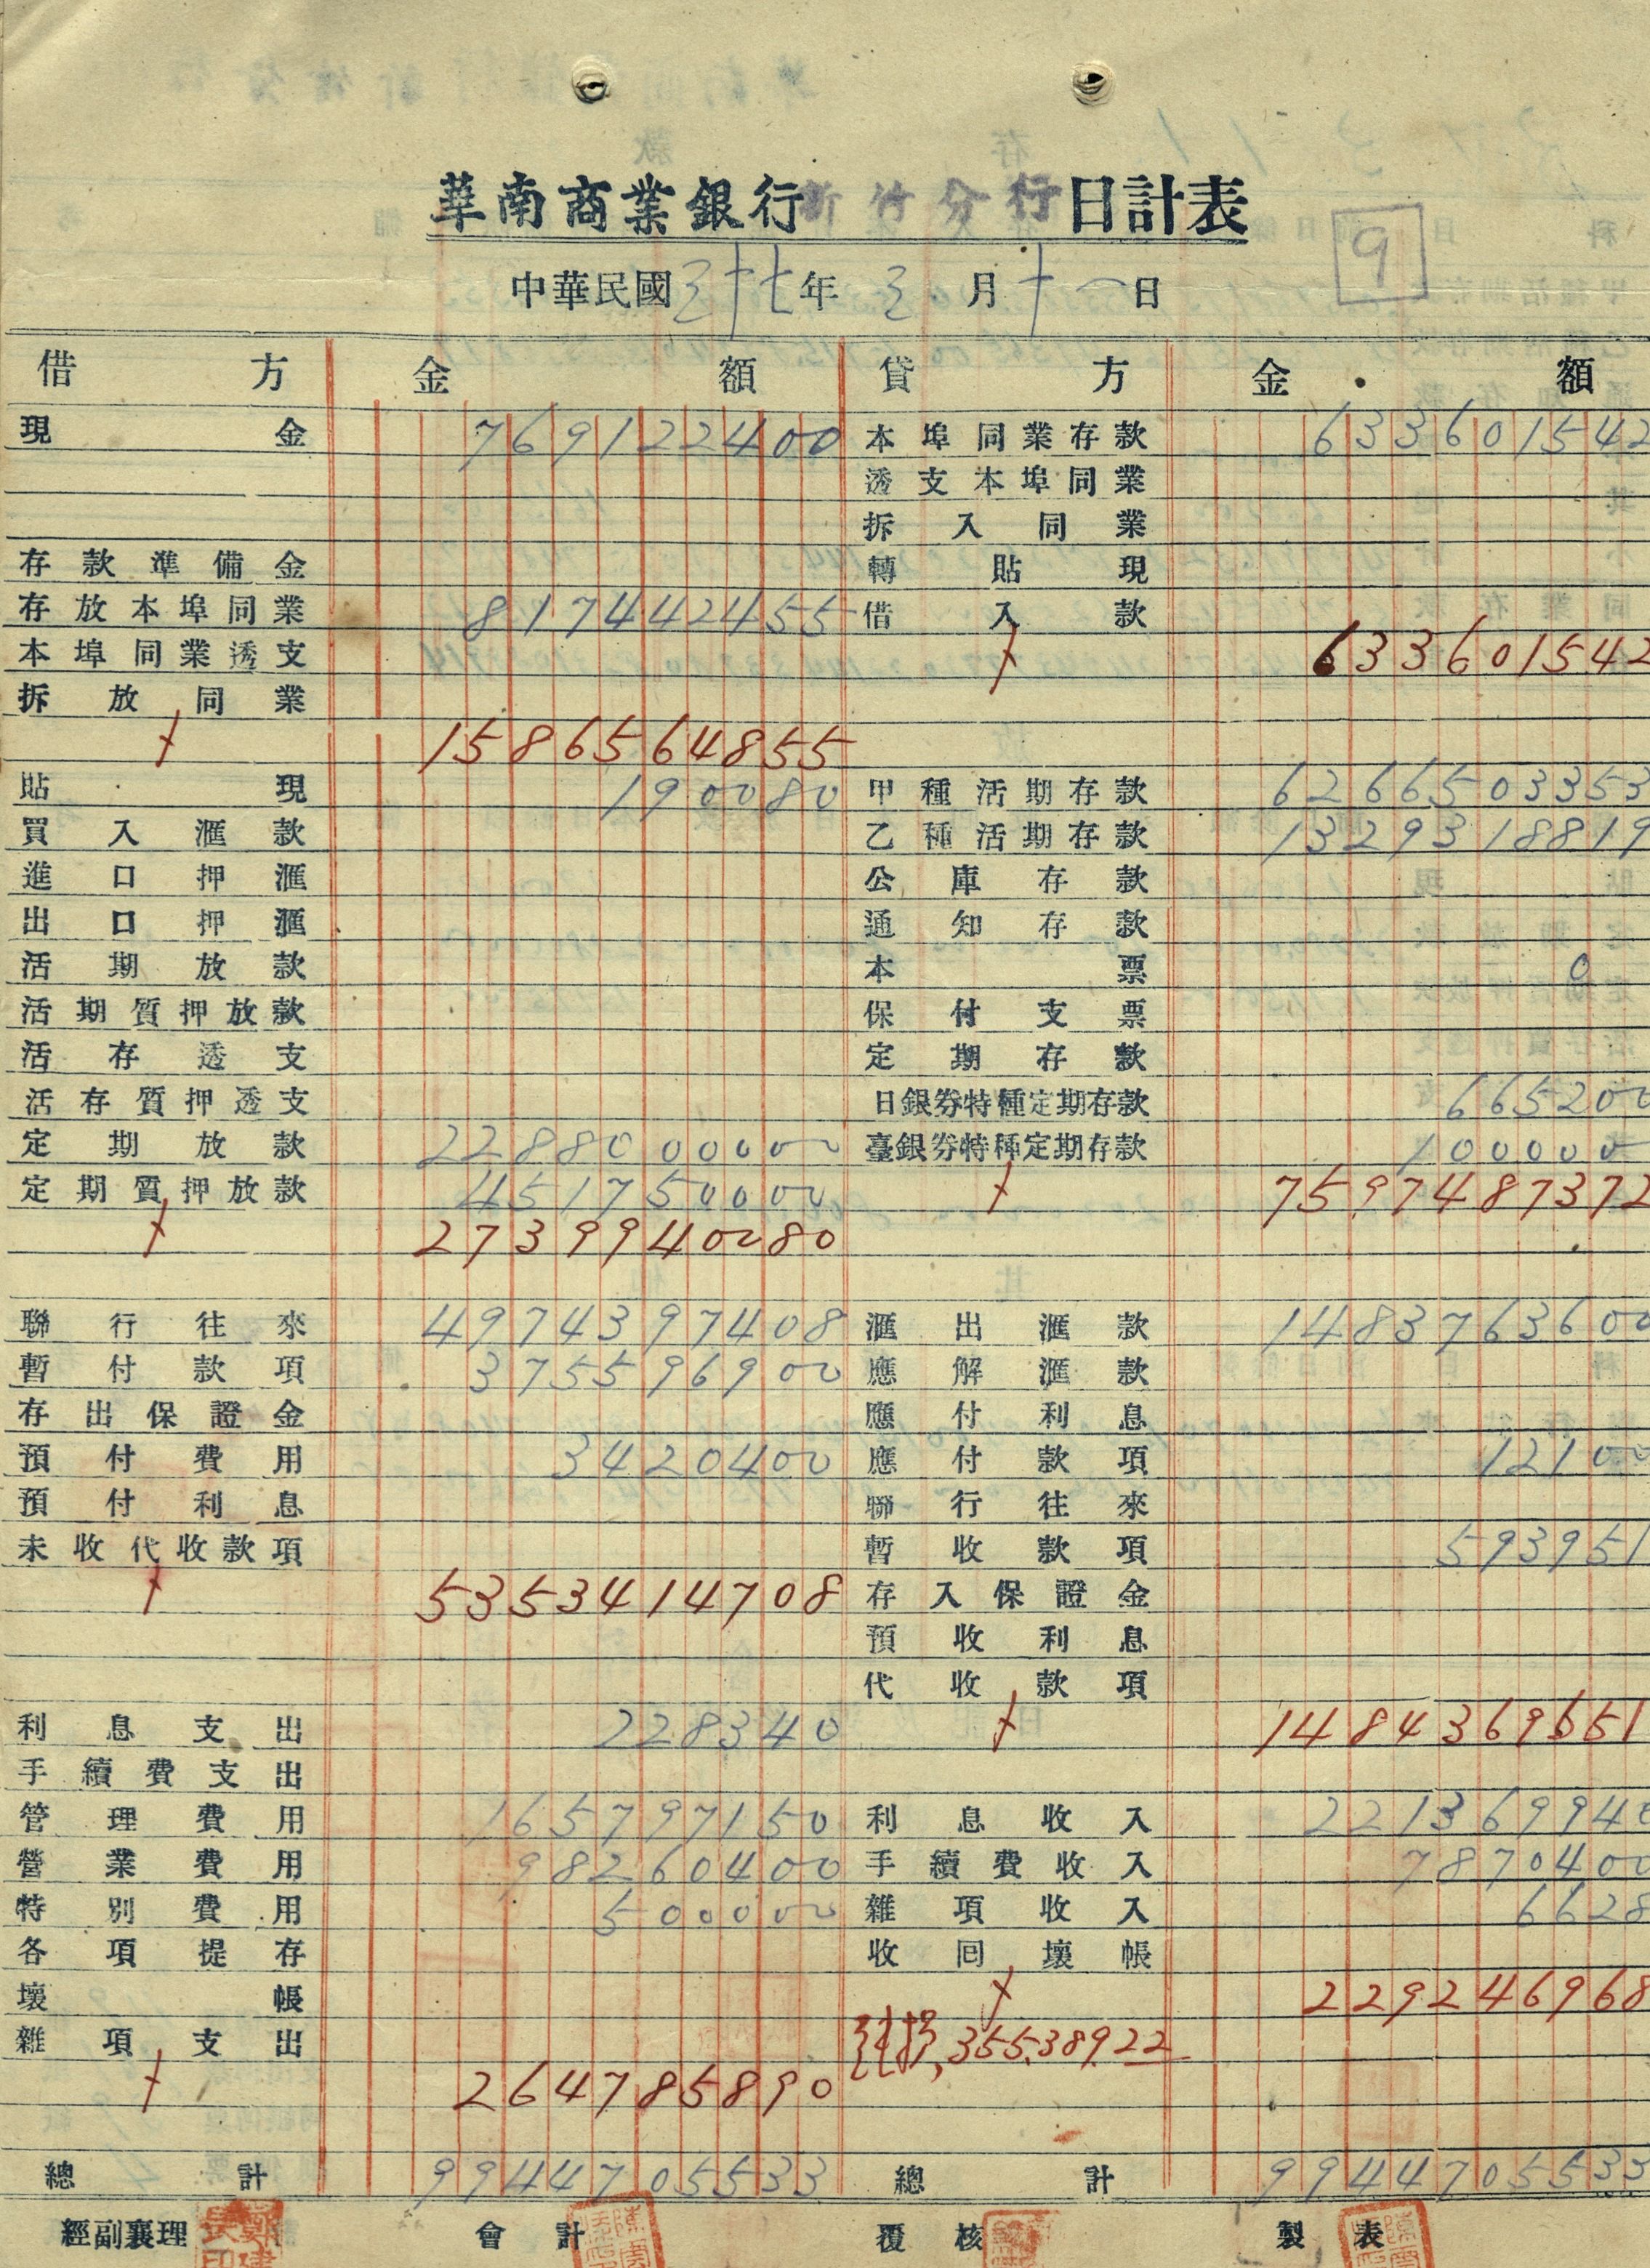 華南商業銀行新竹分行日計表
9
中華民國三十七年三月十一日
借方 金額 貸方 金額
現金 769122400 本埠同業存款 633601542
透支本埠同業
拆入同業
存款準備金 轉貼現
存放本埠同業 817442455 借入款
本埠同業透支 633601542
拆放同業
1586564855
貼現 190080 甲種活期存款 6266503353
買入滙款 乙種活期存款 1329318819
進口押滙 公庫存款
出口押滙 通知存款
活期放款 本票 0
活期質押放款 保付支票
活存透支 定期存款
活存質押透支 日銀券特種定期存款 665200
定期放款 2288000000 臺銀券特種定期存款 1000000
定期質押放款 451750000 7597487372
2739940080
聯行往來 4974397408 滙出滙款 1483763600
暫付款項 375596900 應解滙款
存出保證金 應付利息
預付費用 3420400 應付款項 12100
預付利息 聯行往來
未收代收款項 暫收款項 593951
5353414708 存入保證金
預收利息
代收款項
利息支出 228340 1484369651
手續費支出
管理費用 165797150 利息收入 221369940
營業費用 98260400 手續費收入 7870400
特別費用 500000 雜項收入 6628
各項提存 收回壞帳
壞帳 229246968
雜項支出 純損, 355,389.22
264785890
總計 9944705533 總計 9944705533
經副襄理 會計 覆核 製表